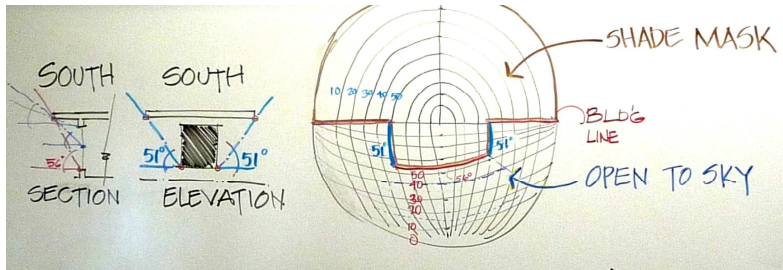 SOUTH
56°
SECTION
SOUTH
51°
51°
ELEVATION
10 20 30 40 50
51°
51°
50
40
30
20
10
0
56°
SHADE MASK
BLD'G
LINE
OPEN TO SKY